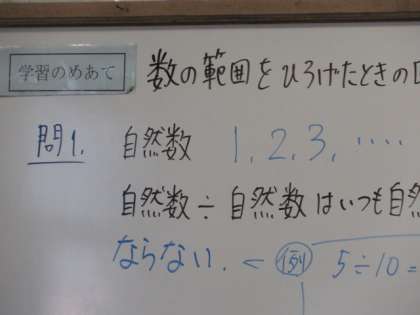 学習のめあて 数の範囲をひろげたときの
問1. 自然数 1, 2, 3, ‥‥
自然数÷自然数はいつも自然
ならない. < 例 5÷10=